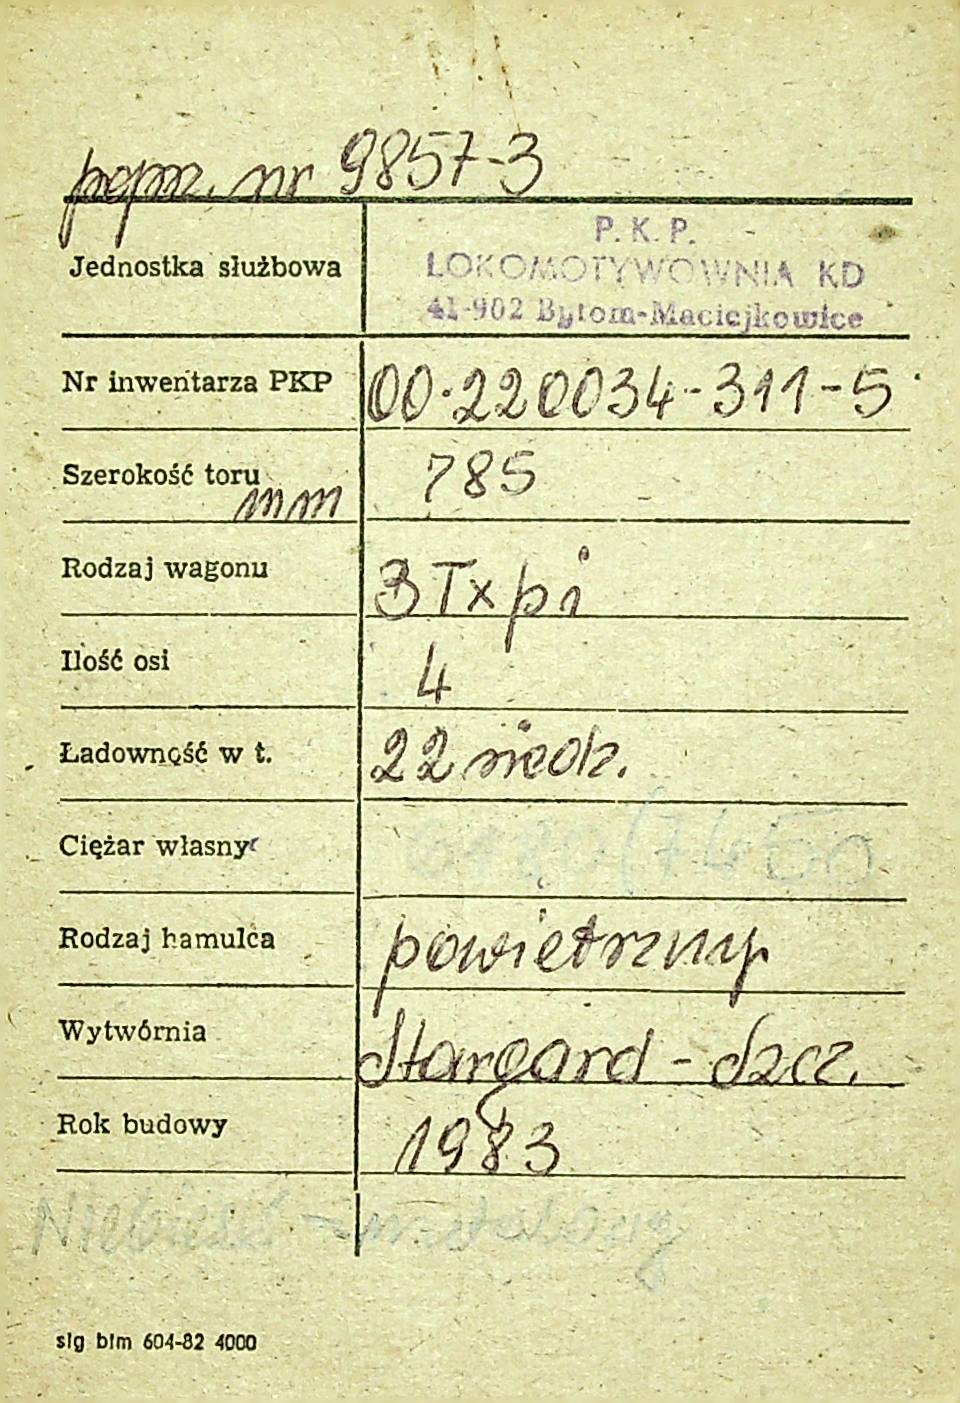 popr. nr 9857-3
Jednostka służbowa
P. K. P.
LOKOMOTYWOWNIA KD
41-902 Bytom-Maciejkowice
Nr inwentarza PKP 00-220034-311-5
Szerokość toru mm 785
Rodzaj wagonu 3Txpi
Ilość osi 4
Ładowność w t. 22 siedz.
Ciężar własny
Rodzaj hamulca powietrzny
Wytwórnia Stargard - Szcz.
Rok budowy 1983
slg blm 604-82 4000